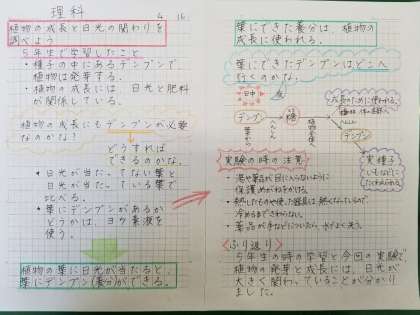 理科
4 16
植物の成長と日光の関わりを
調べよう
5年生で学習したこと
・種子の中にあるデンプンで、
植物は発芽する。
・植物の成長には日光と肥料
が関係している。
植物の成長にもデンプンが必要
なのかな?
どうすれば
できるのかな。
・日光が当たってない葉と
日光が当たっている葉で
比べる。
・葉にデンプンがあるか
どうかは、ヨウ素液を
使う。
植物の葉に日光が当たると、
葉にデンプン(養分)ができる。
葉にできた養分は、植物の
成長に使われる。
葉にできたデンプンはどこへ
行くのかな。
日中
夜
成長のために使われる。
デンプン
糖
葉から
へんしん
へんしん
デンプン
実・種子
いもなどに
たくわえられる
実験の時の注意
・湯や薬品が目に入らないように
保護めがねをかける。
・熱したものや使った器具は熱くなっているので、
冷めるまでさわらない。
・薬品が手などについたら、水でよく洗う。
<ふり返り>
5年生の時の学習と今回の実験で
植物の発芽と成長には、日光が
大きく関わっていることが分かり
ました。